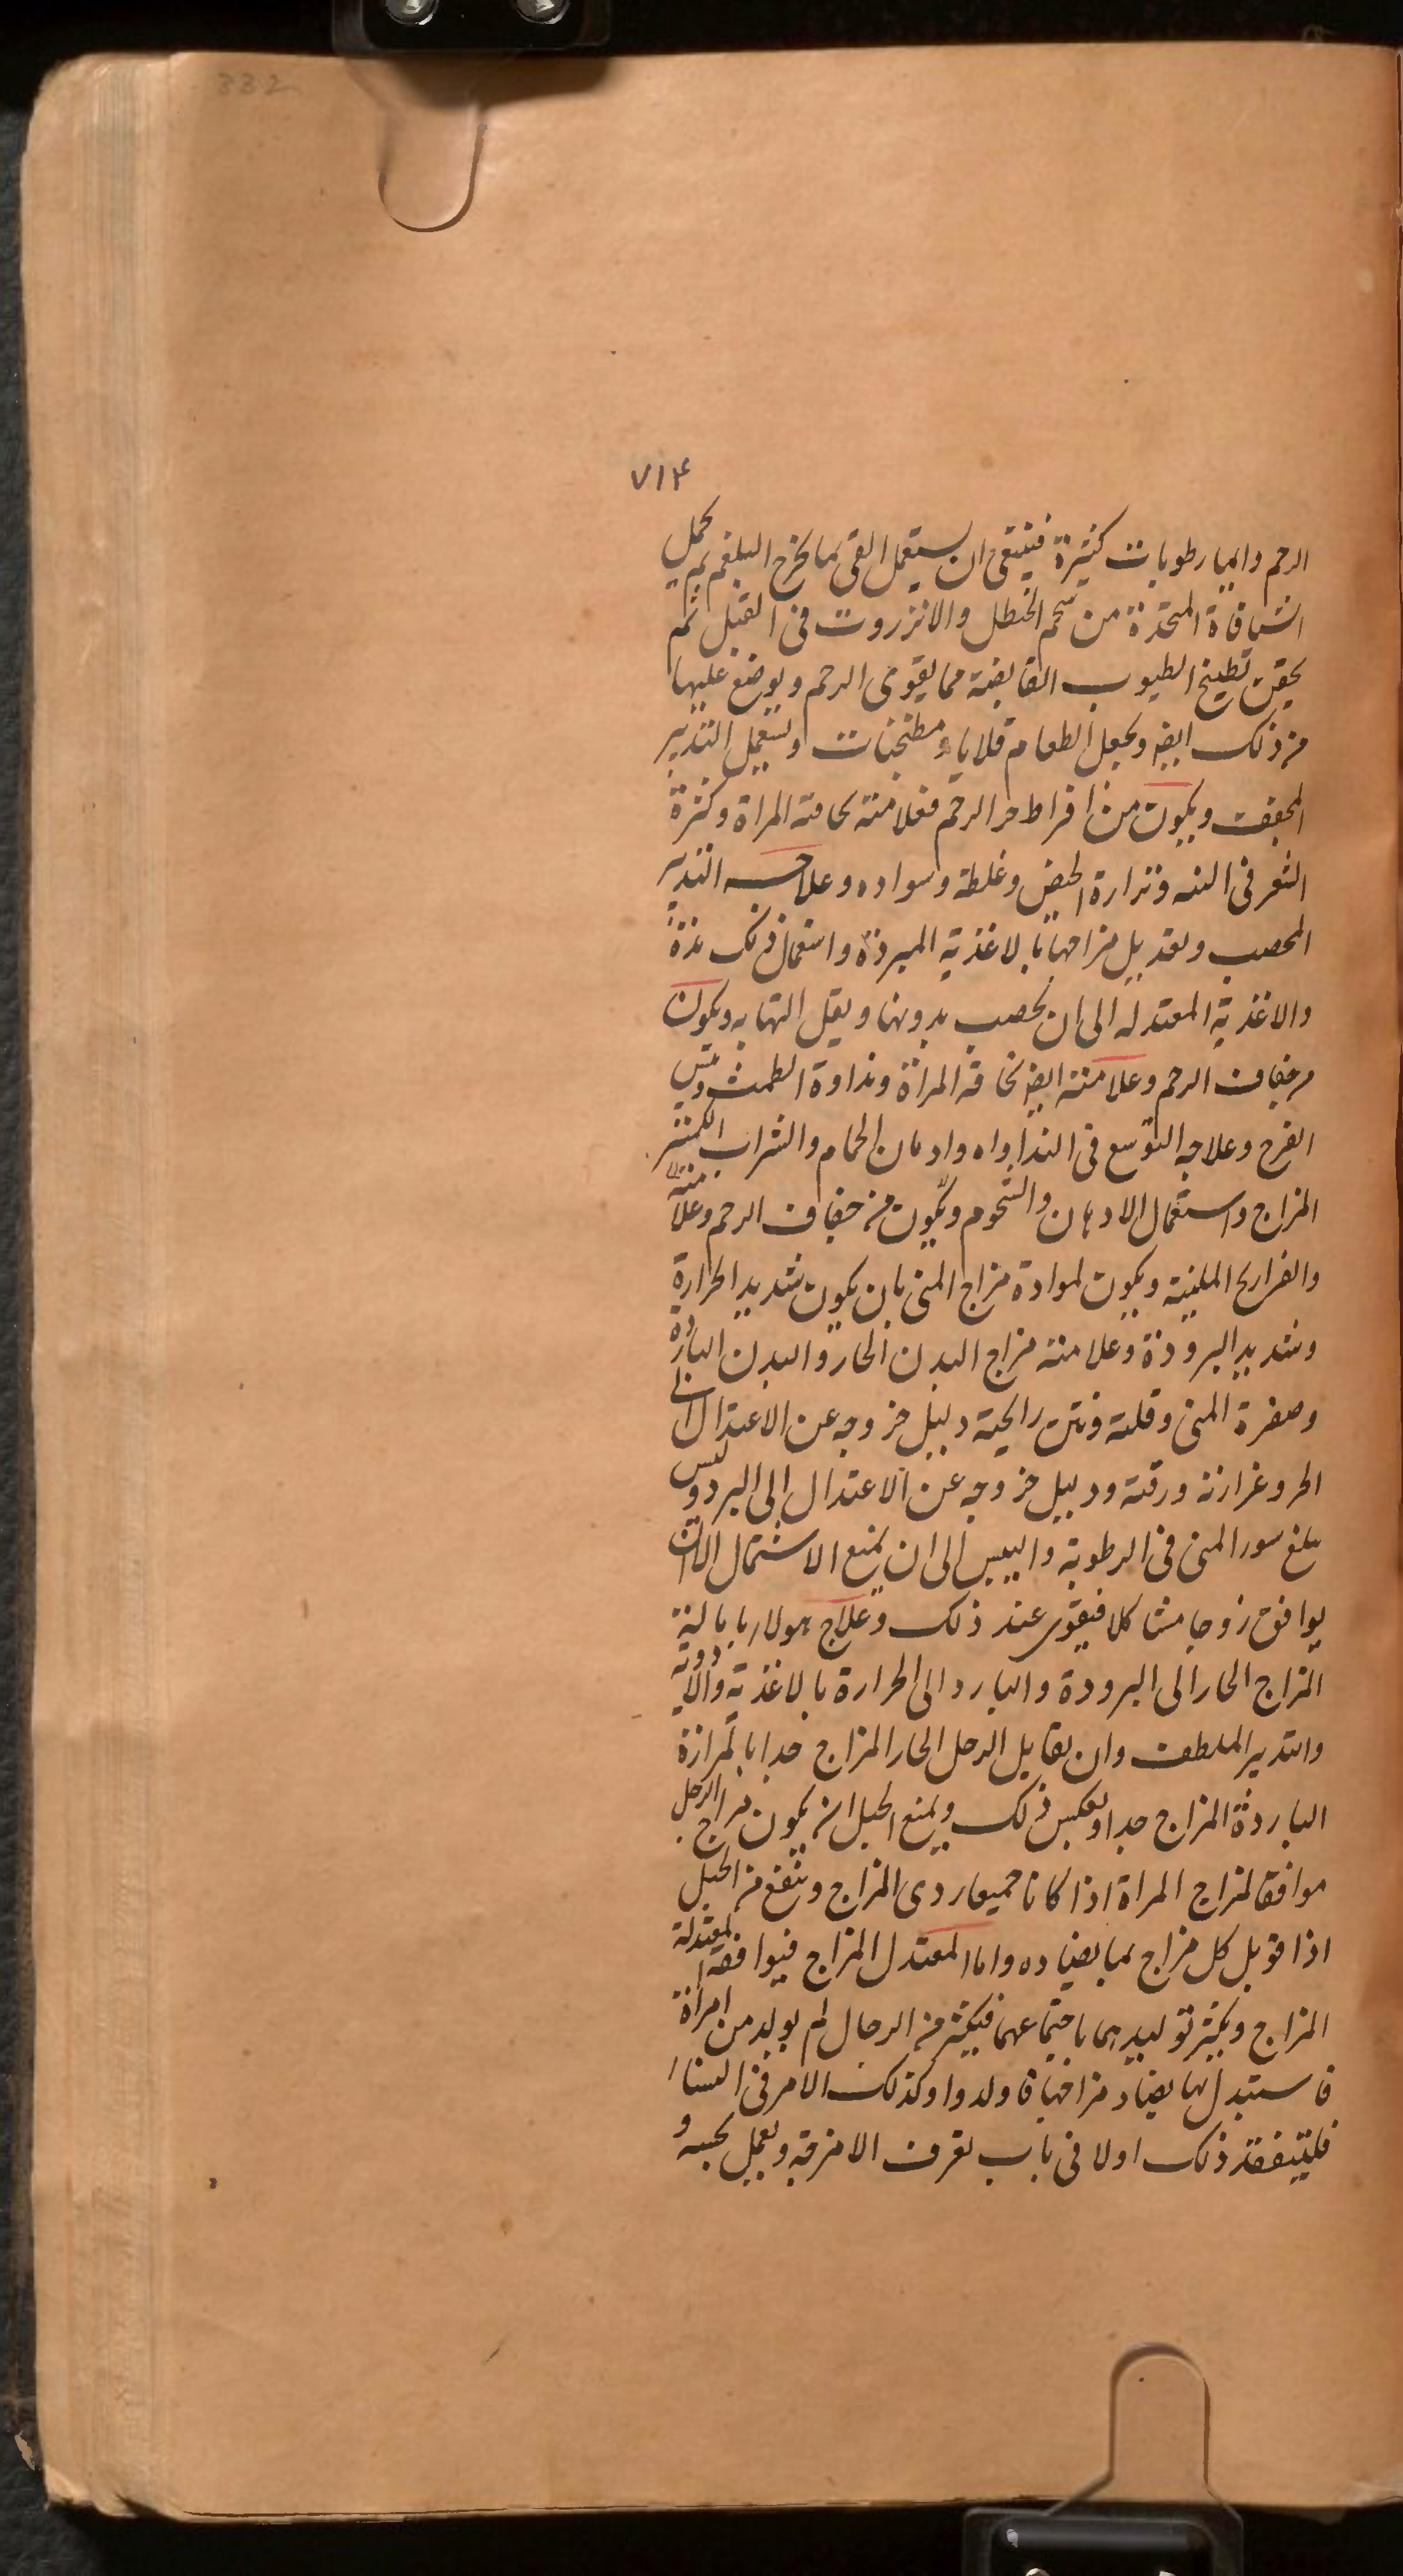 332
۷۱۴
الرحم واليها رطوبات كثيرة فينبغى ان يستعمل القى بما يخرج البلغم ثم يحمل
الشيافة المتخذة من شحم الحنظل والانزروت فى القبل ثم
يحقن بطبيخ الطيوب القابضة مما يقوى الرحم ويوضع عليها
من ذلك ايضا ويجعل الطعام قلايا ومطنجنات ويستعمل التدبير
المجفف ويكون من افراط حر الرحم فعلامته نحافة المراة وكثرة
الشعر فى البدن ونزارة الحيض وغلظه وسواده وعلاجه التدبير
المخصب وتعديل مزاجها بالاغذية المبردة واستعمال ذلك مدة
والاغذية المعتدلة الى ان يخصب بدونها ويقل التهابه ويكون
من جفاف الرحم وعلامته ايضا نحافة المراة ونداوة الطمث ويبس
الفرج وعلاجه التوسع فى الغذا وادمان الحمام والشراب الكثير
المزاج واستعمال الادهان والشحوم ويكون من جفاف الرحم وعلامته
والفراريج الملينة ويكون لموادة مزاج المنى بان يكون شديد الحرارة
وشديد البرودة وعلامته مزاج البدن الحار والبدن الباردة
وصفرة المنى وقلته ونتن رايحته دليل خروجه عن الاعتدال الى
الحر وغزارته ورقته ودليل خروجه عن الاعتدال الى البرد وليس
يبلغ سور المنى فى الرطوبة واليبس الى ان يمنع الاشتمال الا ان
يوافق زوجا مشاكلا فيقوى عند ذلك وعلاج هولا بامالة
المزاج الحار الى البرودة والبارد الى الحرارة بالاغذية والادوية
والتدبير الملطف وان يقابل الرجل الحار المزاج جدا بالمراة
الباردة المزاج جدا وبعكس ذلك ويمنع الحبل ان يكون مزاج الرجل
موافقا لمزاج المراة اذا كانا جميعا ردى المزاج وينتفع من الحبل
اذا قوبل كل مزاج بما يضاده واما المعتدل المزاج فيوافقه المعتدلة
المزاج ويكثر توليدهما باجتماعهما فيكثر من الرجال لم يولد من امراة
فاستبدل بها يضاد مزاجها فاولدوا وكذلك الامر فى النساء
فليتفقد ذلك اولا فى باب تعرف الامزجة ويعمل بحسبه و